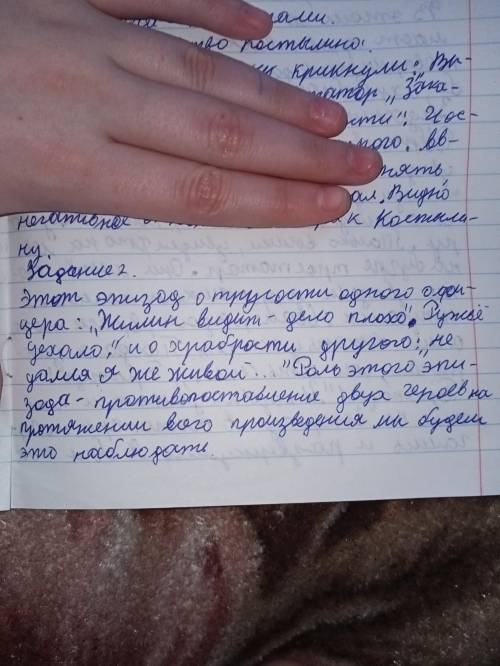 ами.
тво костылино!
крикнули: Вы-
татор „Зака-
сти". Кос-
ного. вв-
нять
ал. Видно
негативное к Костыли-
ну.
Задание 2.
Этот эпизод о трусости одного офи-
цера: „Жилин видит - дело плохо". Ружьё
уехало," и о храбрости другого: „не
дамся я же живой..." Роль этого эпи-
зода - противопоставление двух героев на
протяжении всего произведения мы будем
это наблюдать.